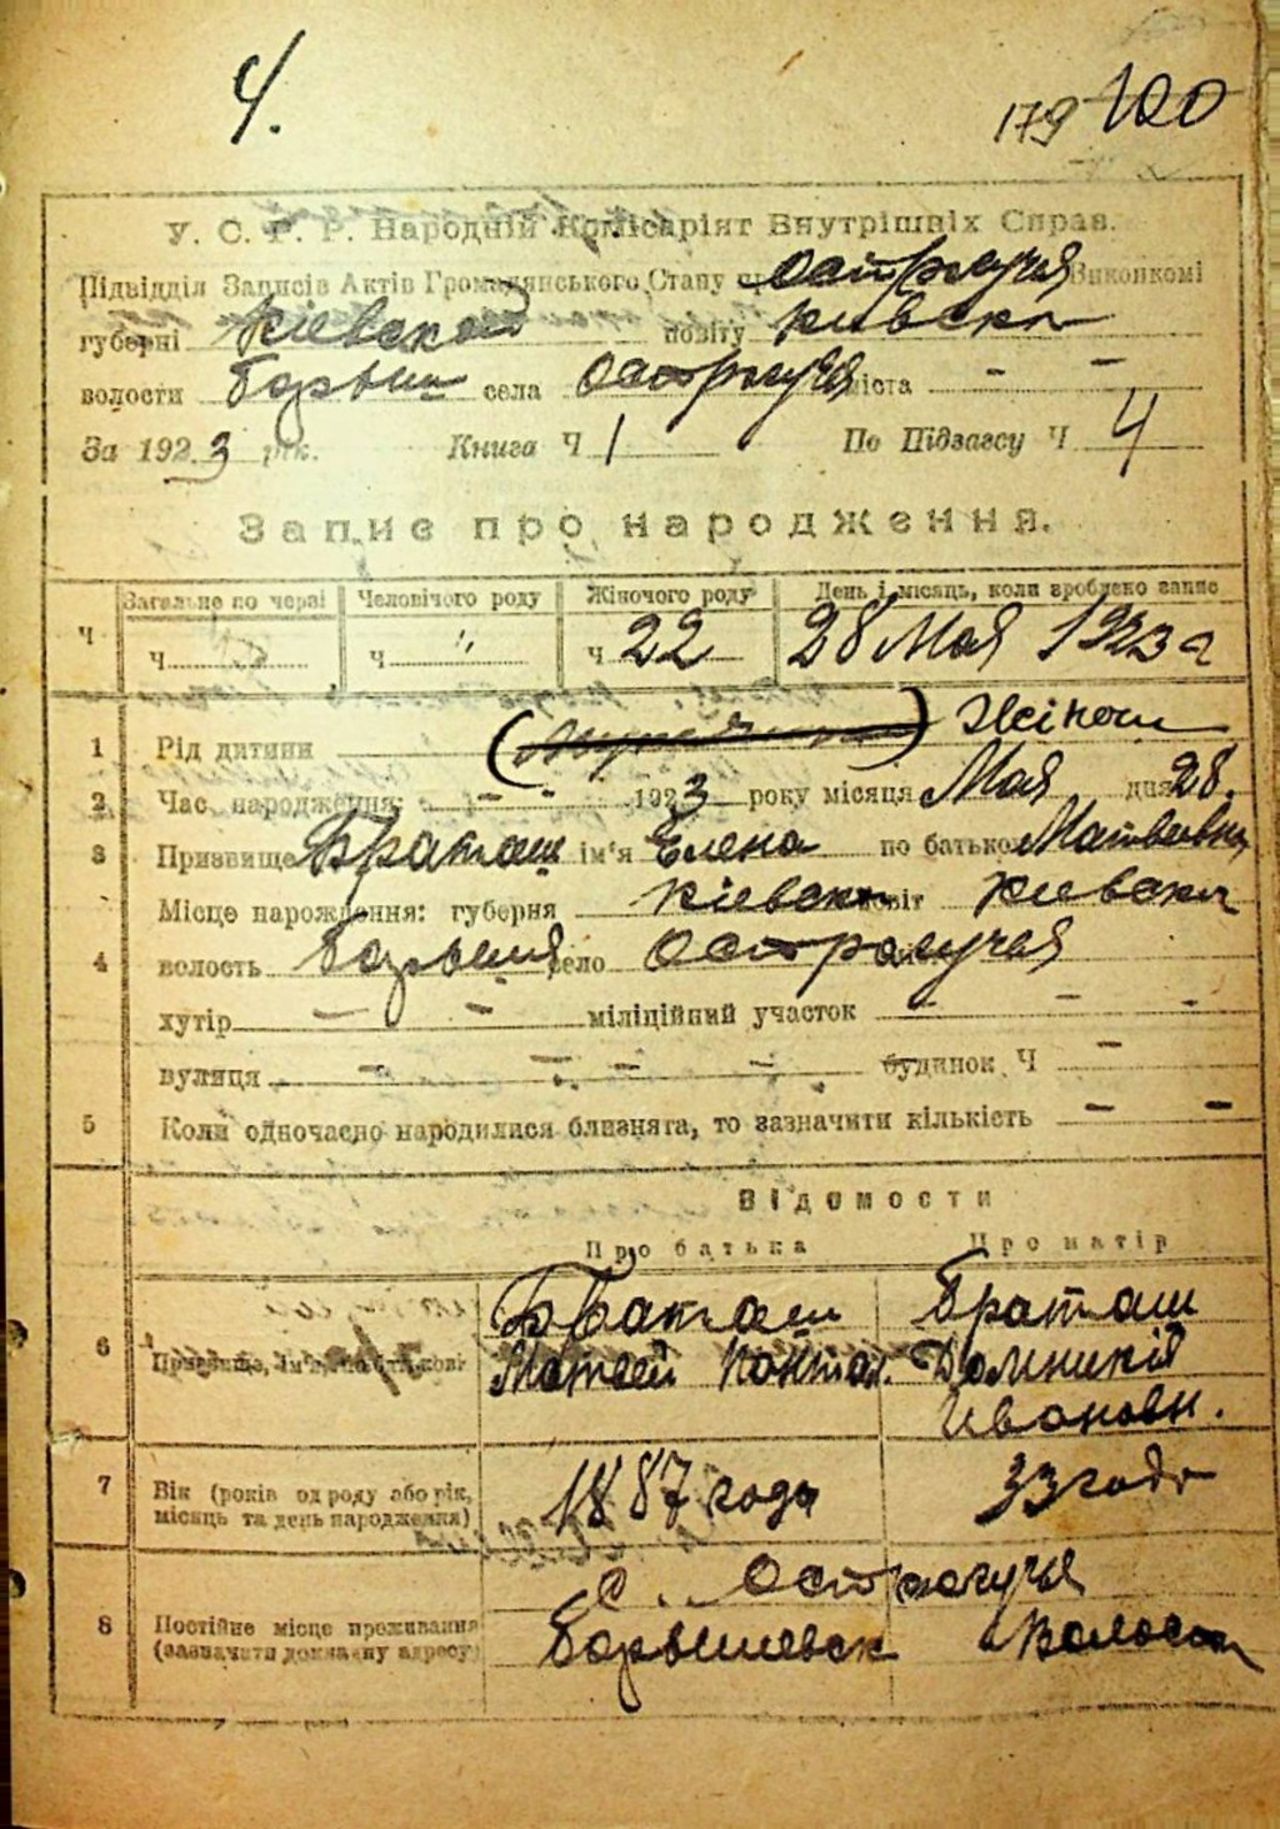 4.
179 100
У. С. Р. Р. Народній Комісаріят Внутрішніх Справ.
Підвідділ Записів Актів Громадянського Стану при Виконкомі
губерні Кіевской повіту Киевск
волости села міста - -
За 1923 рік. Книга Ч 1 По Підзагсу Ч 4
Запис про народження.
Загальне по черзі Человічого роду Жіночого роду День і місяць, коли зроблено запис
Ч ч ч " ч 22 28 Мая 1923 г
1 Рід дитини Жіноч
2 Час народження: - - 1923 року місяця Мая дня 28.
3 Призвище Браташ ім'я Елена по батькові Матвеевна
Місце народження: губерня Кіевск повіт Киевск
4 волость село
хутір - - міліційний участок - - -
вулиця - - - - будинок Ч -
5 Коли одночасно народилися близнята, то зазначити кількість - -
Відомости
Про батька Про матір
6 Призвище, ім'я, по батькові Браташ Браташ
Матвей Пантел. Домникія
Ивановн.
7 Вік (років од роду або рік, місяць та день народження) 1887 года 33 года
с.
8 Постійне місце проживання (зазначити докладну адресу)